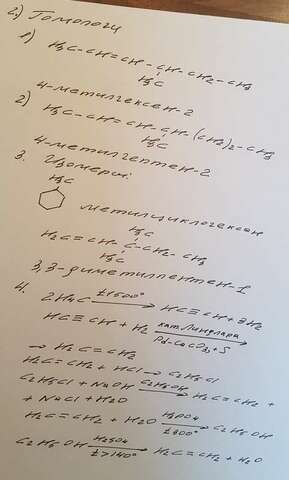 2.) Гомологи
1)
H3C-CH=CH-CH-CH2-CH3
H3C
4-метилгексен-2
2)
H3C-CH=CH-CH-(CH2)2-CH3
H3C
4-метилгептен-2
3. Изомеры:
H3C
метилциклогексан
H3C
H2C=CH-C-CH2-CH3
H3C
3,3-диметилпентен-1
4.
2CH4 t1500° → HC≡CH + 3H2
HC≡CH + H2 кат. Линдлара
Pd-CaCO3+S
→ H2C=CH2
H2C=CH2 + HCl → C2H5Cl
C2H5Cl + NaOH C2H5OH → H2C=CH2 +
+ NaCl + H2O
H2C=CH2 + H2O H3PO4 → C2H5OH
t300°
C2H5OH H2SO4 → H2C=CH2 + H2O
t>140°